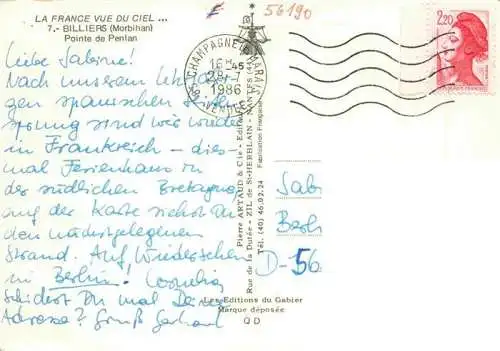 LA FRANCE VUE DU CIEL ...
7.- BILLIERS (Morbihan)
Pointe de Penlan
56190
Liebe Sabine!
Nach unserem
gen spanischen
sprung sind wir wieder
in Frankreich - dies-
mal Ferienhaus in
der südlichen Bretagne,
auf der Karte siehst Du
den nächstgelegenen
Strand. Auf Wiedersehen
in Berlin! Cornelia
schickst Du mal Deine
Adresse? Gruß Gerhard
CHAMPAGNE
16 H 45
28-7
1986
VENDEE
Pierre ARTAUD & Cie - Editeurs
Rue de la Dutée - ZIL de St-HERBLAIN - NANTES (44)
Tél. (40) 46.02.24
Fabrication Française
2,20
Sab
Berl
D-56
Les Editions du Gabier
Marque déposée